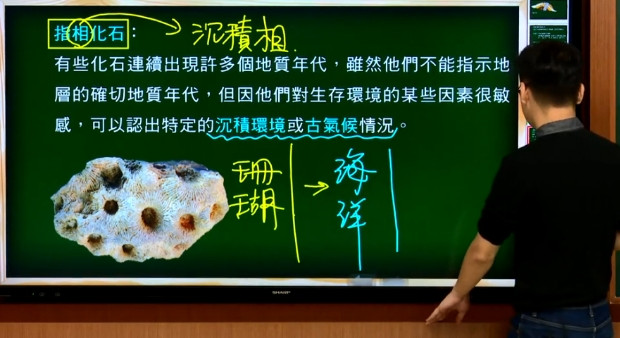 指相化石： 沉積相.
有些化石連續出現許多個地質年代，雖然他們不能指示地
層的確切地質年代，但因他們對生存環境的某些因素很敏
感，可以認出特定的沉積環境或古氣候情況。
珊瑚 → 海洋
SHARP